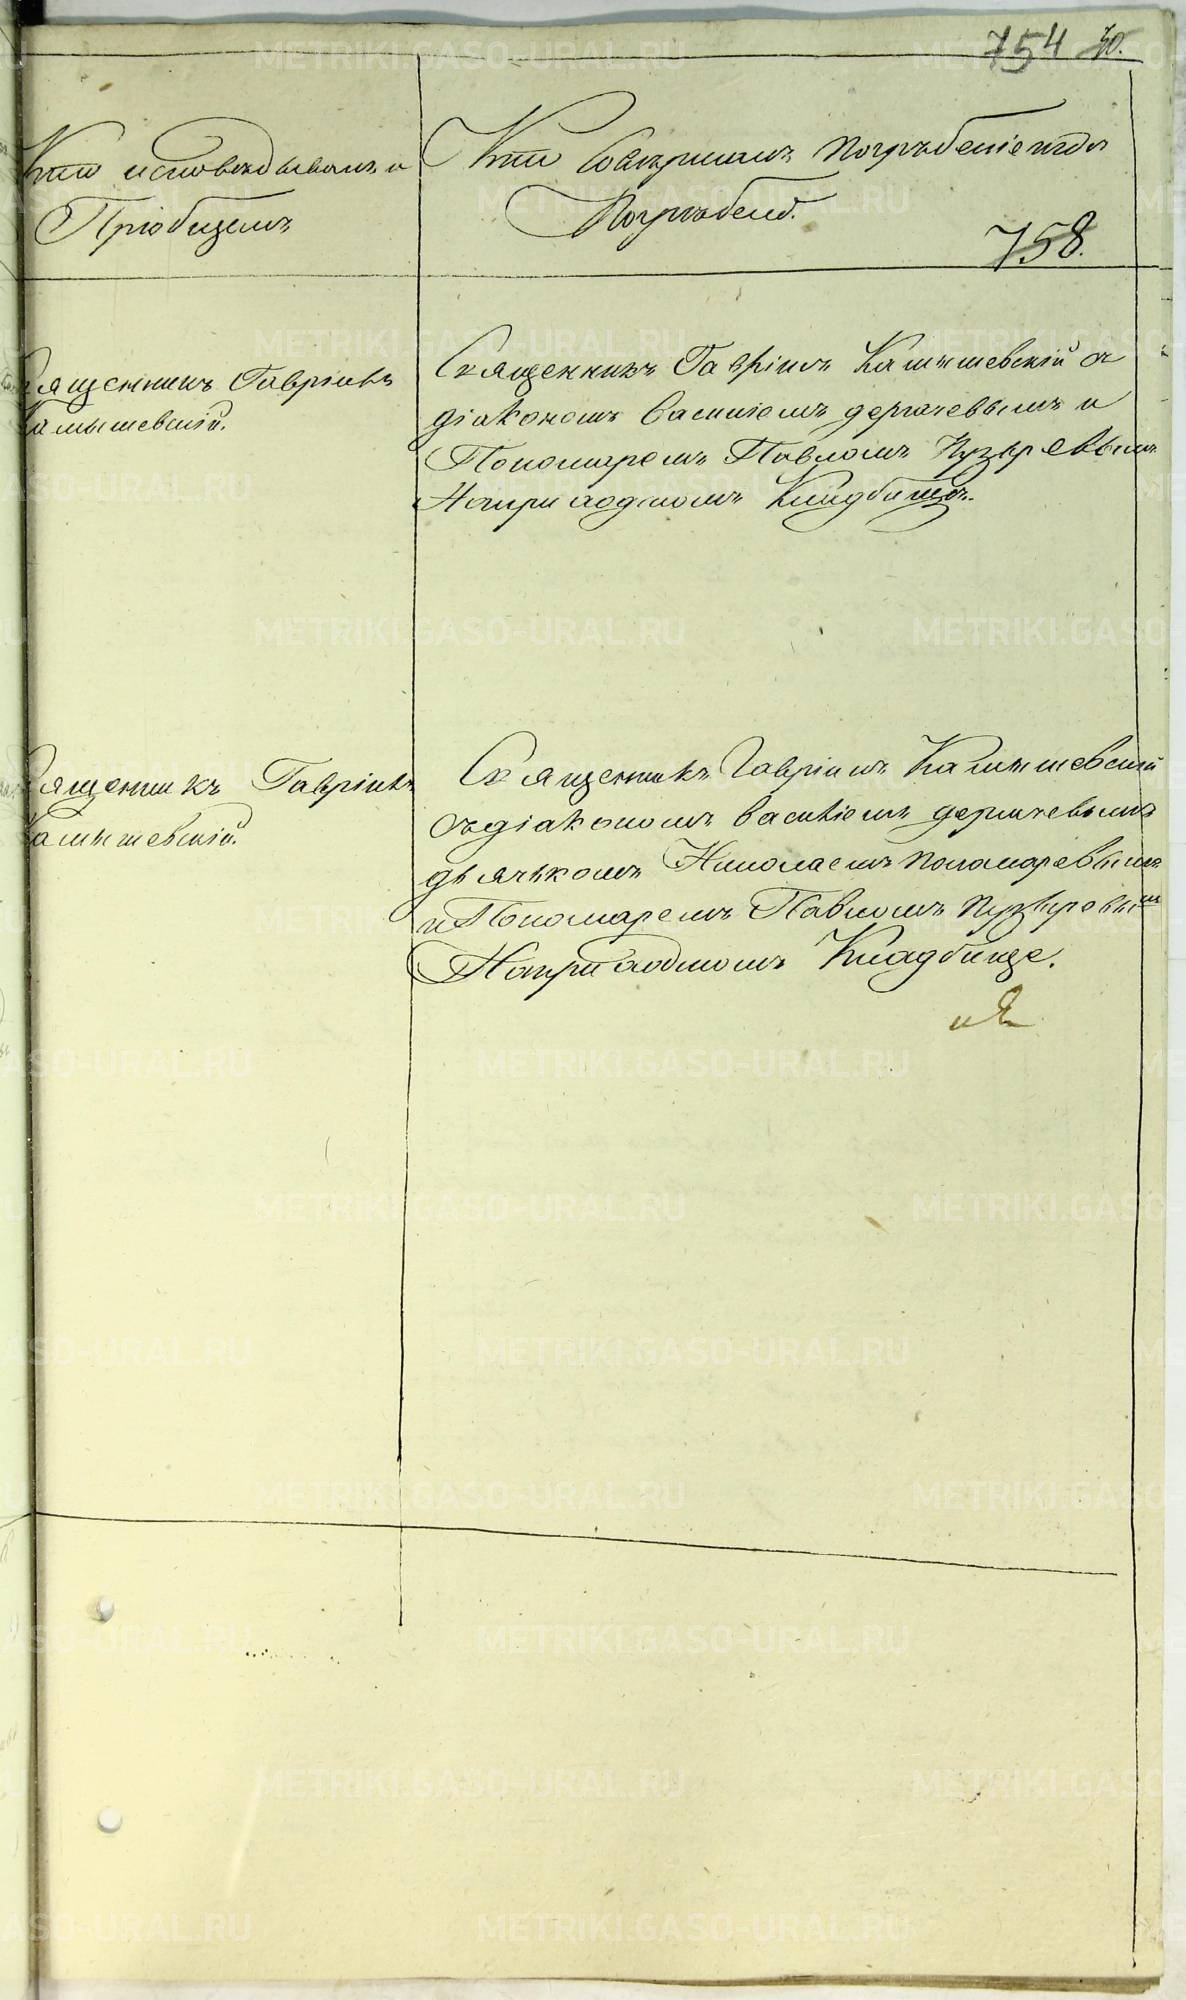 754 30.
Кто исповѣдывалъ и
Пріобщалъ
Кто Совершалъ погребеніе и гдѣ
Погребены.
758.
Священникъ Гавріилъ
Камышевскій.
Священникъ Гавріилъ Камышевскій съ
діакономъ Василіемъ дергачевымъ и
Пономаремъ Павломъ Пузыревымъ
На приходскомъ Кладбищѣ.
Священникъ Гавріилъ
Камышевскій.
Священникъ Гавріилъ Камышевскій
съ діакономъ василіемъ дергачевымъ
дьячькомъ Николаемъ пономаревымъ
и Пономаремъ Павломъ пузыревымъ
На приходскомъ Кладбище.
METRIKI.GASO-URAL.RU